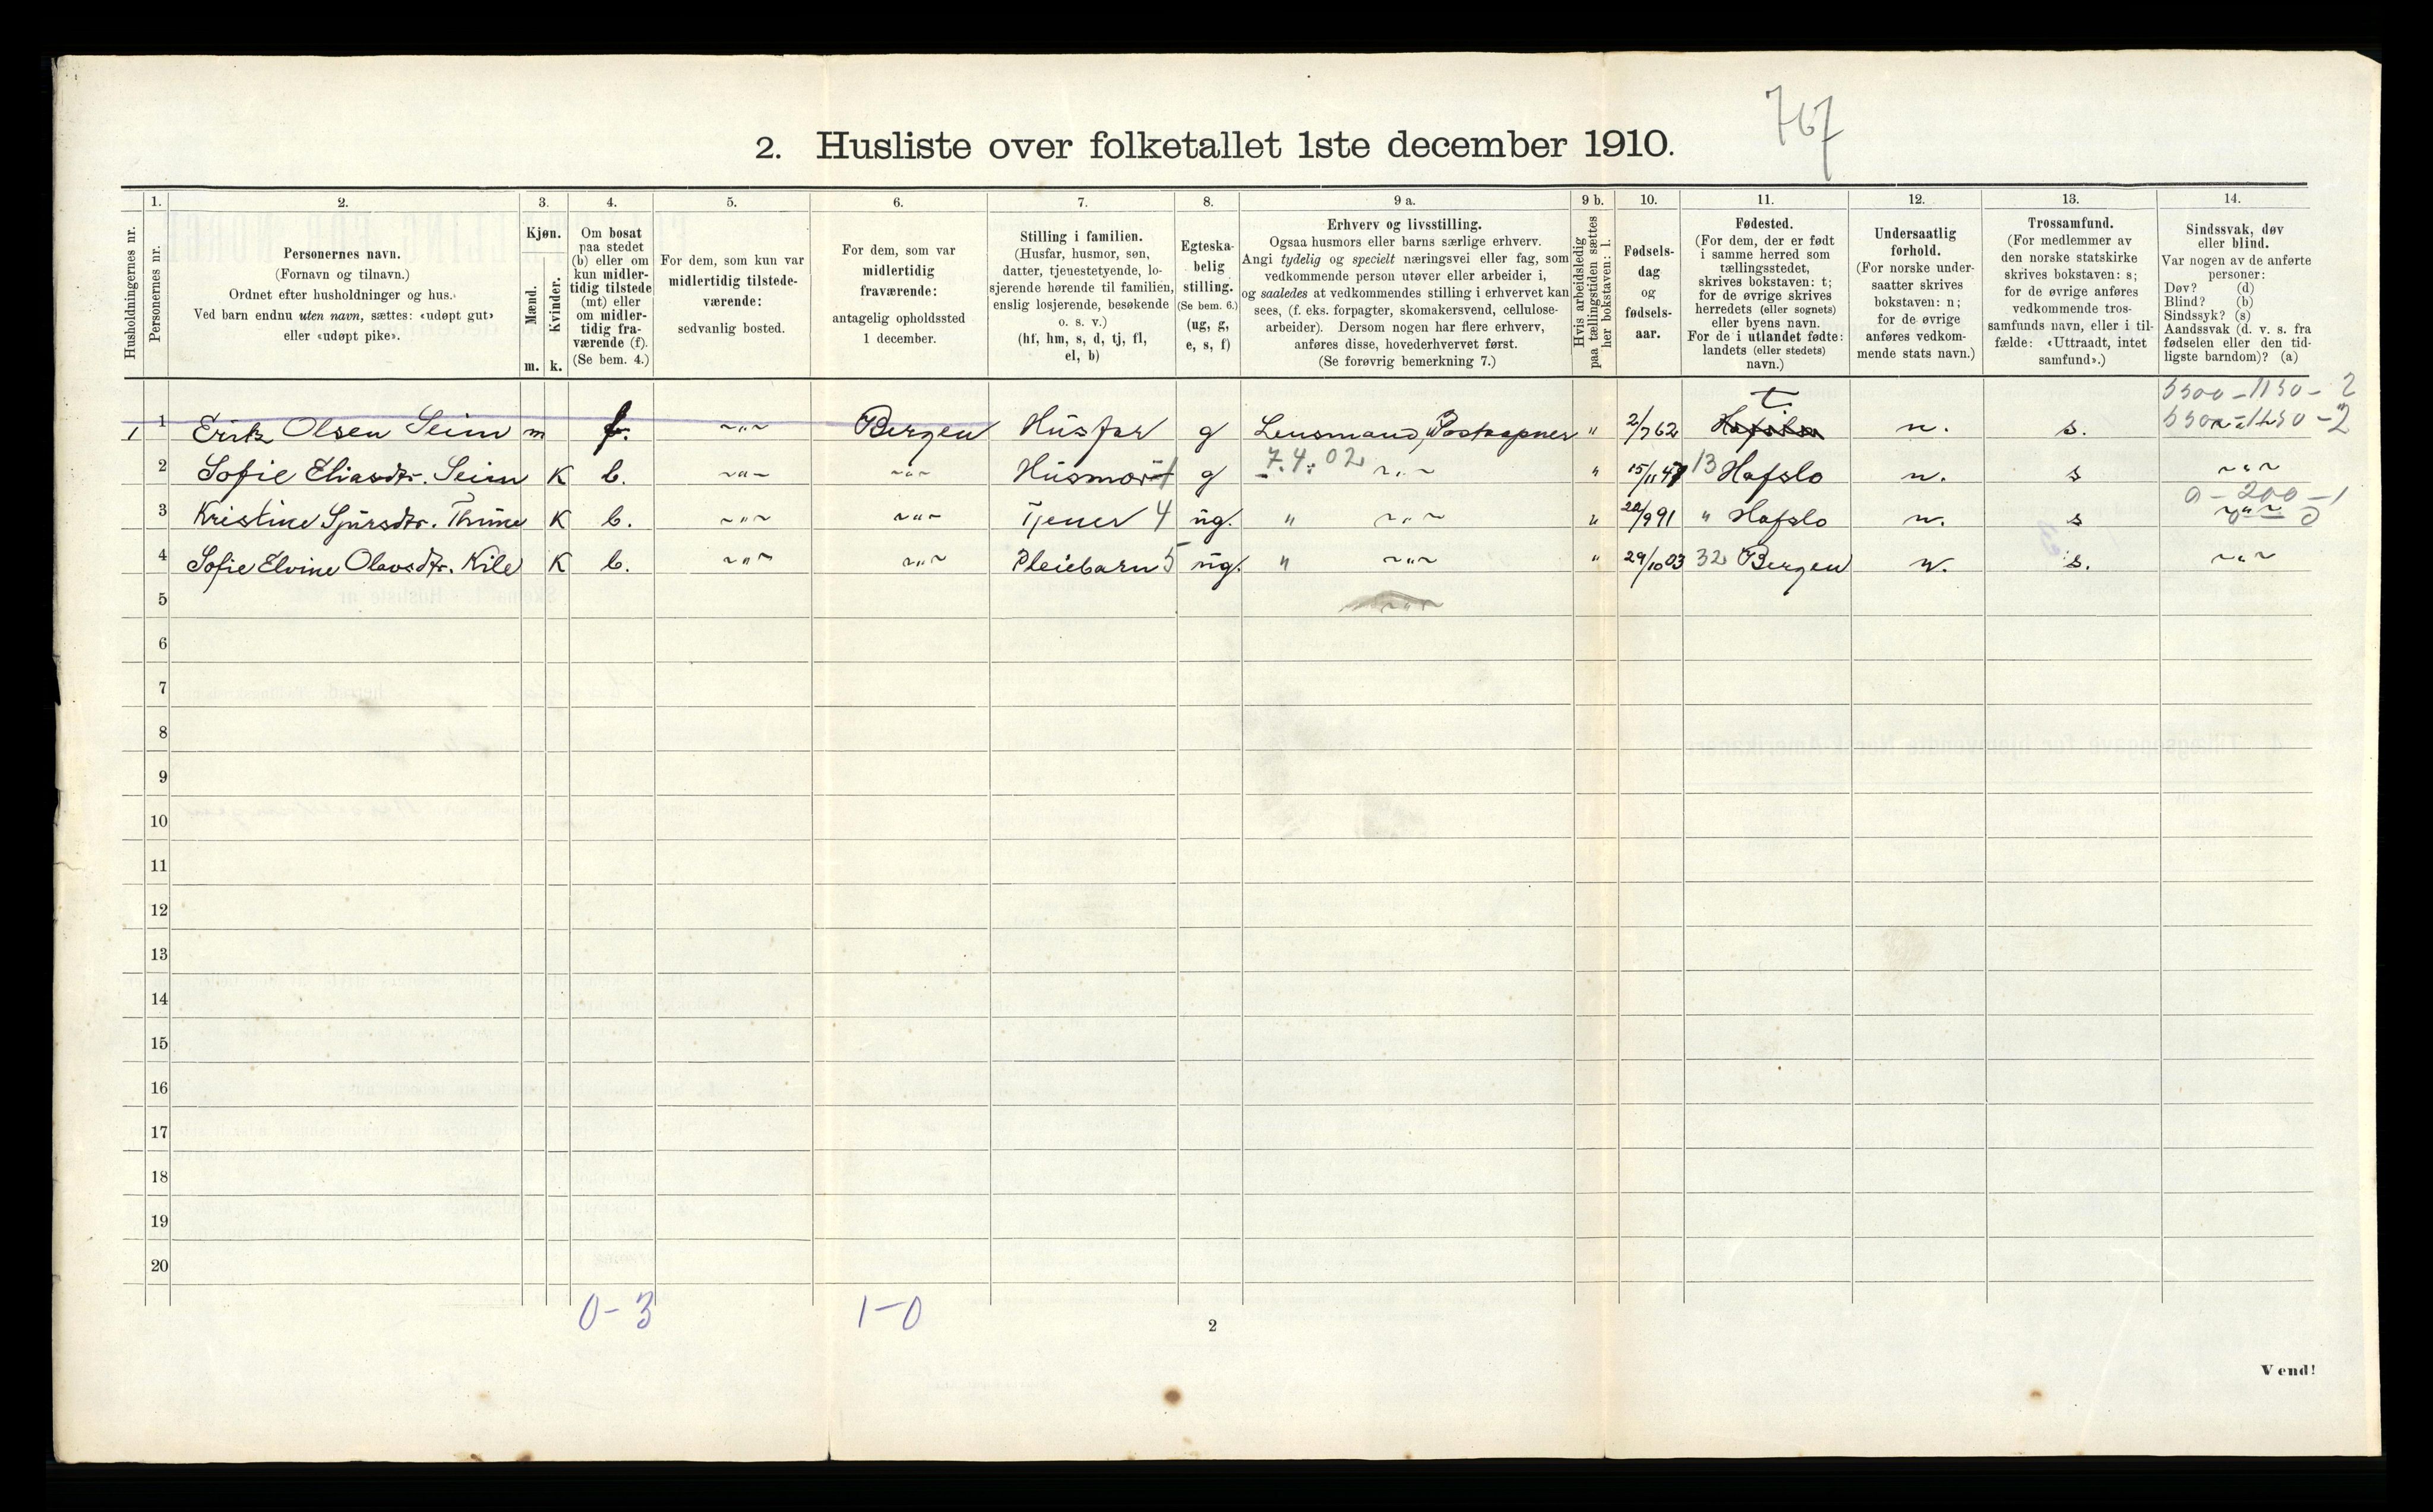 767
2. Husliste over folketallet 1ste december 1910.
Husholdningernes nr.
1.
Personernes nr.
2.
Personernes navn.
(Fornavn og tilnavn.)
Ordnet efter husholdninger og hus.
Ved barn endnu uten navn, sættes: «udøpt gut»
eller «udøpt pike».
3.
Kjøn.
Mænd.
m.
Kvinder.
k.
4.
Om bosat
paa stedet
(b) eller om
kun midler-
tidig tilstede
(mt) eller
om midler-
tidig fra-
værende (f).
(Se bem. 4.)
5.
For dem, som kun var
midlertidig tilstede-
værende:
sedvanlig bosted.
6.
For dem, som var
midlertidig
fraværende:
antagelig opholdssted
1 december.
7.
Stilling i familien.
(Husfar, husmor, søn,
datter, tjenestetyende, lo-
sjerende hørende til familien,
enslig losjerende, besøkende
o. s. v.)
(hf, hm, s, d, tj, fl,
el, b)
8.
Egteska-
belig
stilling.
(Se bem. 6.)
(ug, g,
e, s, f)
9 a.
Erhverv og livsstilling.
Ogsaa husmors eller barns særlige erhverv.
Angi tydelig og specielt næringsvei eller fag, som
vedkommende person utøver eller arbeider i,
og saaledes at vedkommendes stilling i erhvervet kan
sees, (f. eks. forpagter, skomakersvend, cellulose-
arbeider). Dersom nogen har flere erhverv,
anføres disse, hovederhvervet først.
(Se forøvrig bemerkning 7.)
9 b.
Hvis arbeidsledig
paa tællingstiden sættes
her bokstaven: l.
10.
Fødsels-
dag
og
fødsels-
aar.
11.
Fødested.
(For dem, der er født
i samme herred som
tællingsstedet,
skrives bokstaven: t;
for de øvrige skrives
herredets (eller sognets)
eller byens navn.
For de i utlandet fødte:
landets (eller stedets)
navn.)
12.
Undersaatlig
forhold.
(For norske under-
saatter skrives
bokstaven: n;
for de øvrige
anføres vedkom-
mende stats navn.)
13.
Trossamfund.
(For medlemmer av
den norske statskirke
skrives bokstaven: s;
for de øvrige anføres
vedkommende tros-
samfunds navn, eller i til-
fælde: «Uttraadt, intet
samfund».)
14.
Sindssvak, døv
eller blind.
Var nogen av de anførte
personer:
Døv? (d)
Blind? (b)
Sindssyk? (s)
Aandssvak (d. v. s. fra
fødselen eller den tid-
ligste barndom)? (a)
5500 - 1150 - 2
1 1 Erik Olsen Seim m f. ~"~ Bergen Husfar g Lensmand, Postaapner " 2/7 62 t. Hafslo n. s.
2 Sofie Eliasdtr. Seim K b. ~"~ ~"~ Husmor g 7.4.02 ~"~ " 15/11 47 13 Hafslo n. s ~"~
0 - 200 - 1
3 Kristine Sjursdtr. Thune K b. ~"~ ~"~ Tjener 4 ug. " ~"~ " 20/9 91 " Hafslo n. s ~"~
4 Sofie Elvine Olavsdtr. Kile K b. ~"~ ~"~ Pleiebarn 5 ug. " ~"~ " 29/10 03 32 Bergen n. s. ~"~
5 ~"~
6
7
8
9
10
11
12
13
14
15
16
17
18
19
20
0 - 3 1 - 0
2
Vend!